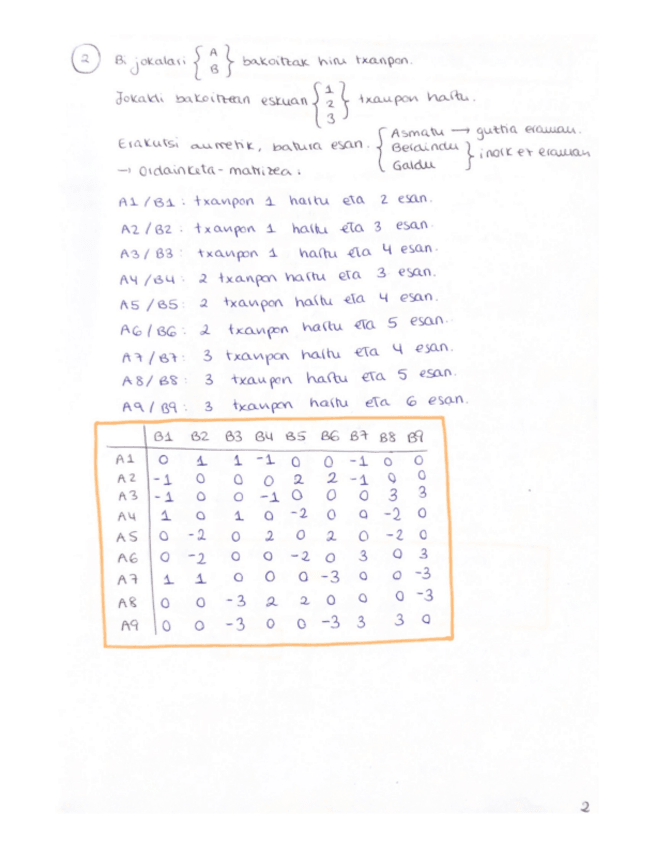 2 Bi jokalari { A B } bakoitzak hiru txanpon.
Jokaldi bakoitzean eskuan { 1 2 3 } txanpon hartu.
Erakutsi aurretik, batura esan. { Asmatu → guztia eraman. Berdindu Galdu } inork ez eraman
→ Ordainketa-matrizea:
A1/B1: txanpon 1 hartu eta 2 esan.
A2/B2: txanpon 1 hartu eta 3 esan.
A3/B3: txanpon 1 hartu eta 4 esan.
A4/B4: 2 txanpon hartu eta 3 esan.
A5/B5: 2 txanpon hartu eta 4 esan.
A6/B6: 2 txanpon hartu eta 5 esan.
A7/B7: 3 txanpon hartu eta 4 esan.
A8/B8: 3 txanpon hartu eta 5 esan.
A9/B9: 3 txanpon hartu eta 6 esan.
B1 B2 B3 B4 B5 B6 B7 B8 B9
A1 0 1 1 -1 0 0 -1 0 0
A2 -1 0 0 0 2 2 -1 0 0
A3 -1 0 0 -1 0 0 0 3 3
A4 1 0 1 0 -2 0 0 -2 0
A5 0 -2 0 2 0 2 0 -2 0
A6 0 -2 0 0 -2 0 3 0 3
A7 1 1 0 0 0 -3 0 0 -3
A8 0 0 -3 2 2 0 0 0 -3
A9 0 0 -3 0 0 -3 3 3 0
2